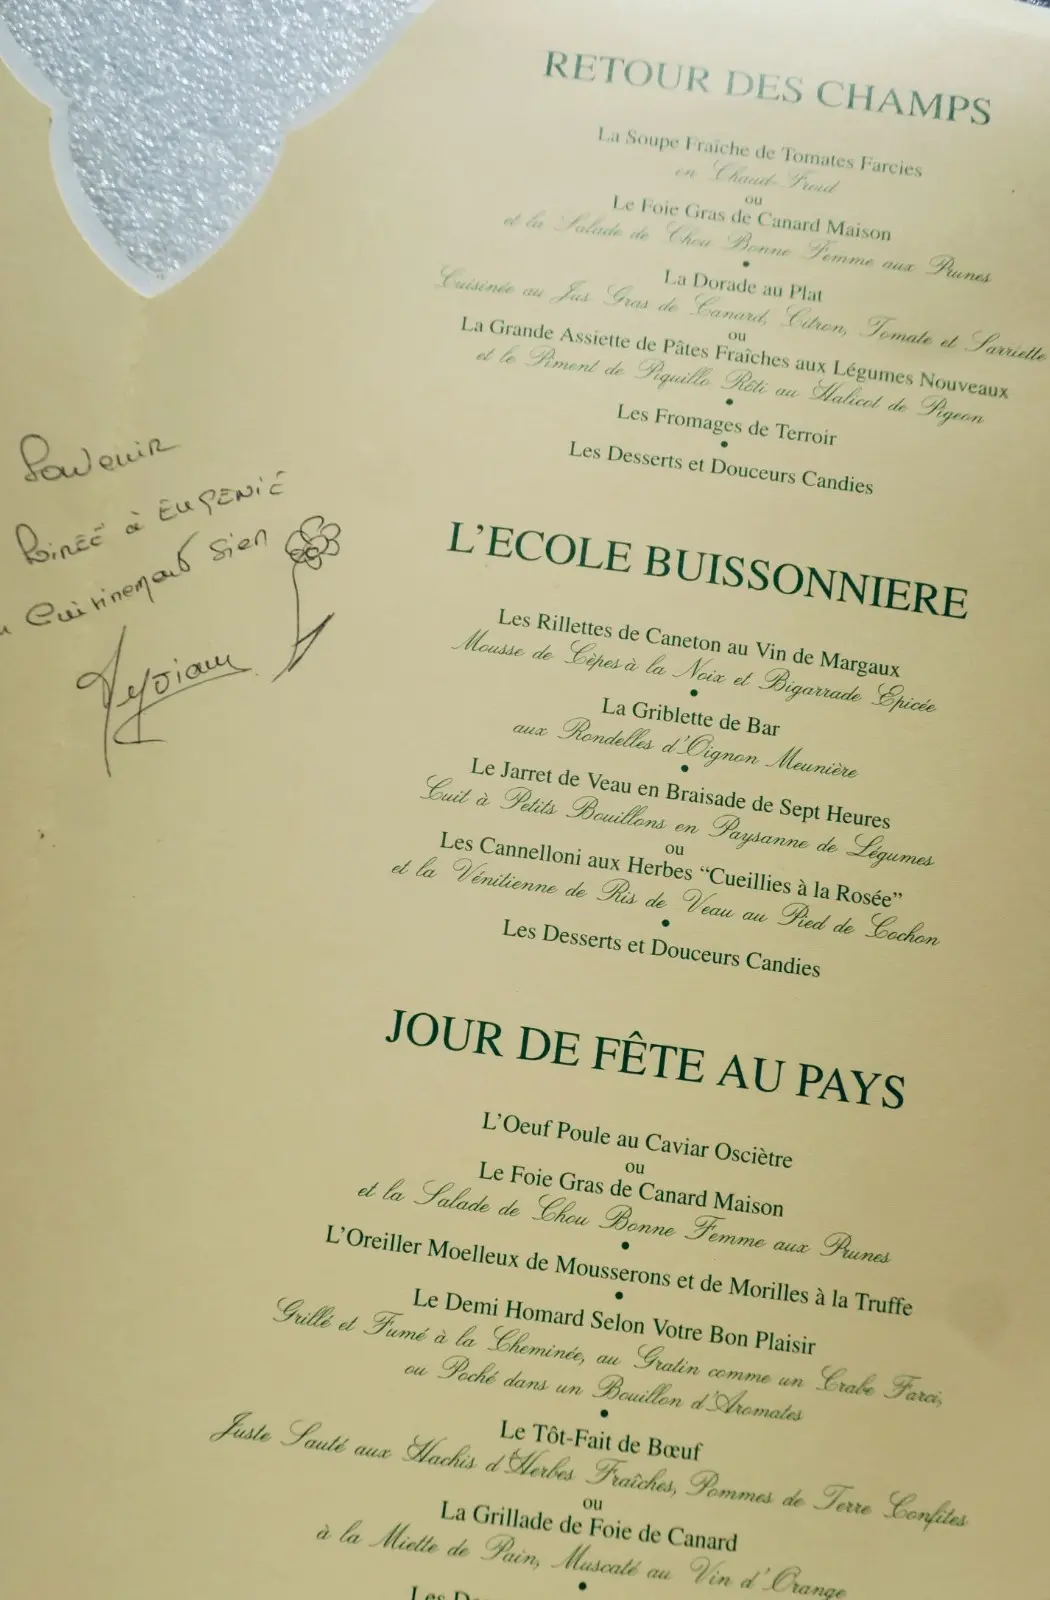 RETOUR DES CHAMPS
La Soupe Fraîche de Tomates Farcies
en Chaud-Froid
ou
Le Foie Gras de Canard Maison
et la Salade de Chou Bonne Femme aux Prunes
•
La Dorade au Plat
Cuisinée au Jus Gras de Canard, Citron, Tomate et Sarriette
ou
La Grande Assiette de Pâtes Fraîches aux Légumes Nouveaux
et le Piment de Piquillo Rôti au Halicot de Pigeon
•
Les Fromages de Terroir
•
Les Desserts et Douceurs Candies
Souvenir
Soirée à EUGENIE
Cuisinement Sien
L'ECOLE BUISSONNIERE
Les Rillettes de Caneton au Vin de Margaux
Mousse de Cèpes à la Noix et Bigarrade Epicée
•
La Griblette de Bar
aux Rondelles d'Oignon Meunière
•
Le Jarret de Veau en Braisade de Sept Heures
Cuit à Petits Bouillons en Paysanne de Légumes
ou
Les Cannelloni aux Herbes “Cueillies à la Rosée”
et la Vénitienne de Ris de Veau au Pied de Cochon
•
Les Desserts et Douceurs Candies
JOUR DE FÊTE AU PAYS
L'Oeuf Poule au Caviar Osciètre
ou
Le Foie Gras de Canard Maison
et la Salade de Chou Bonne Femme aux Prunes
•
L'Oreiller Moelleux de Mousserons et de Morilles à la Truffe
•
Le Demi Homard Selon Votre Bon Plaisir
Grillé et Fumé à la Cheminée, au Gratin comme un Crabe Farci,
ou Poché dans un Bouillon d'Aromates
•
Le Tôt-Fait de Bœuf
Juste Sauté aux Hachis d'Herbes Fraîches, Pommes de Terre Confites
ou
La Grillade de Foie de Canard
à la Miette de Pain, Muscaté au Vin d'Orange
•
Les